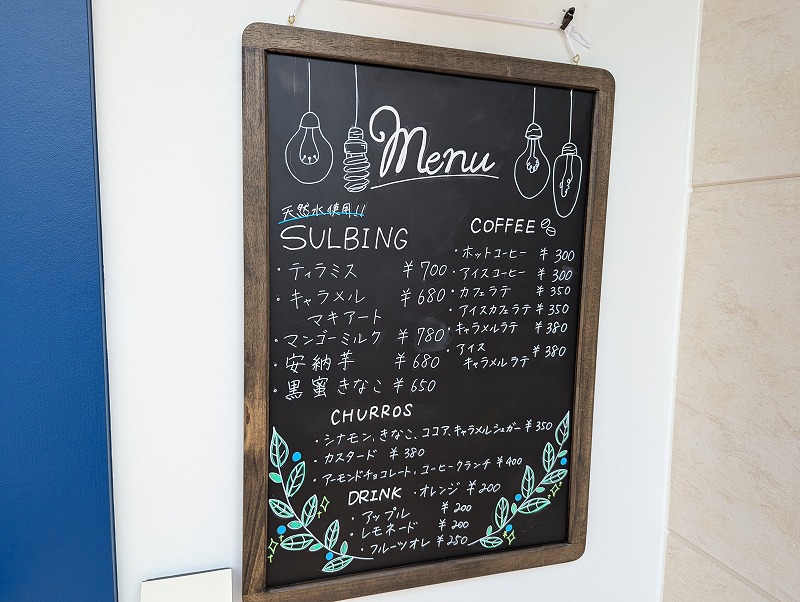 Menu
天然水使用!!
SULBING
・ティラミス ¥700
・キャラメル ¥680
マキアート
・マンゴーミルク ¥780
・安納芋 ¥680
・黒蜜きなこ ¥650
COFFEE
・ホットコーヒー ¥300
・アイスコーヒー ¥300
・カフェラテ ¥350
・アイスカフェラテ ¥350
・キャラメルラテ ¥380
・アイス
キャラメルラテ ¥380
CHURROS
・シナモン、きなこ、ココア、キャラメルシュガー ¥350
・カスタード ¥380
・アーモンドチョコレート、コーヒークランチ ¥400
DRINK ・オレンジ ¥200
・アップル ¥200
・レモネード ¥200
・フルーツオレ ¥250